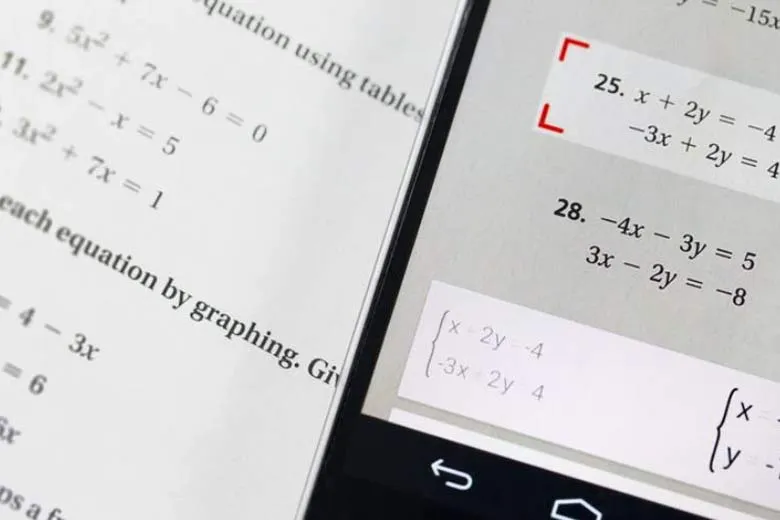 quation using tables
9. 5x² + 7x − 6 = 0
11. 2x² − x = 5
3x² + 7x = 1
each equation by graphing. Giv
= 4 − 3x
= 6
ps a f
= −15x
25. x + 2y = −4
−3x + 2y = 4
28. −4x − 3y = 5
3x − 2y = −8
x 2y -4
-3x 2y 4
x
y -